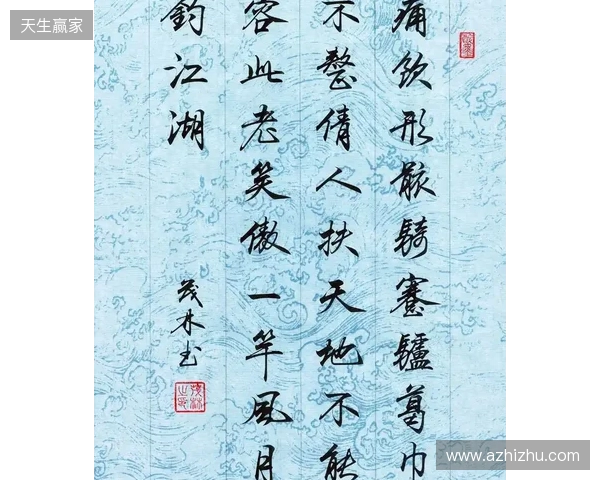 天生赢家
痛饮形骸騎蹇驢葛巾
不整倩人扶天地不能
容此老笑傲一竿風月
釣江湖
茂林书
www.azhizhu.com